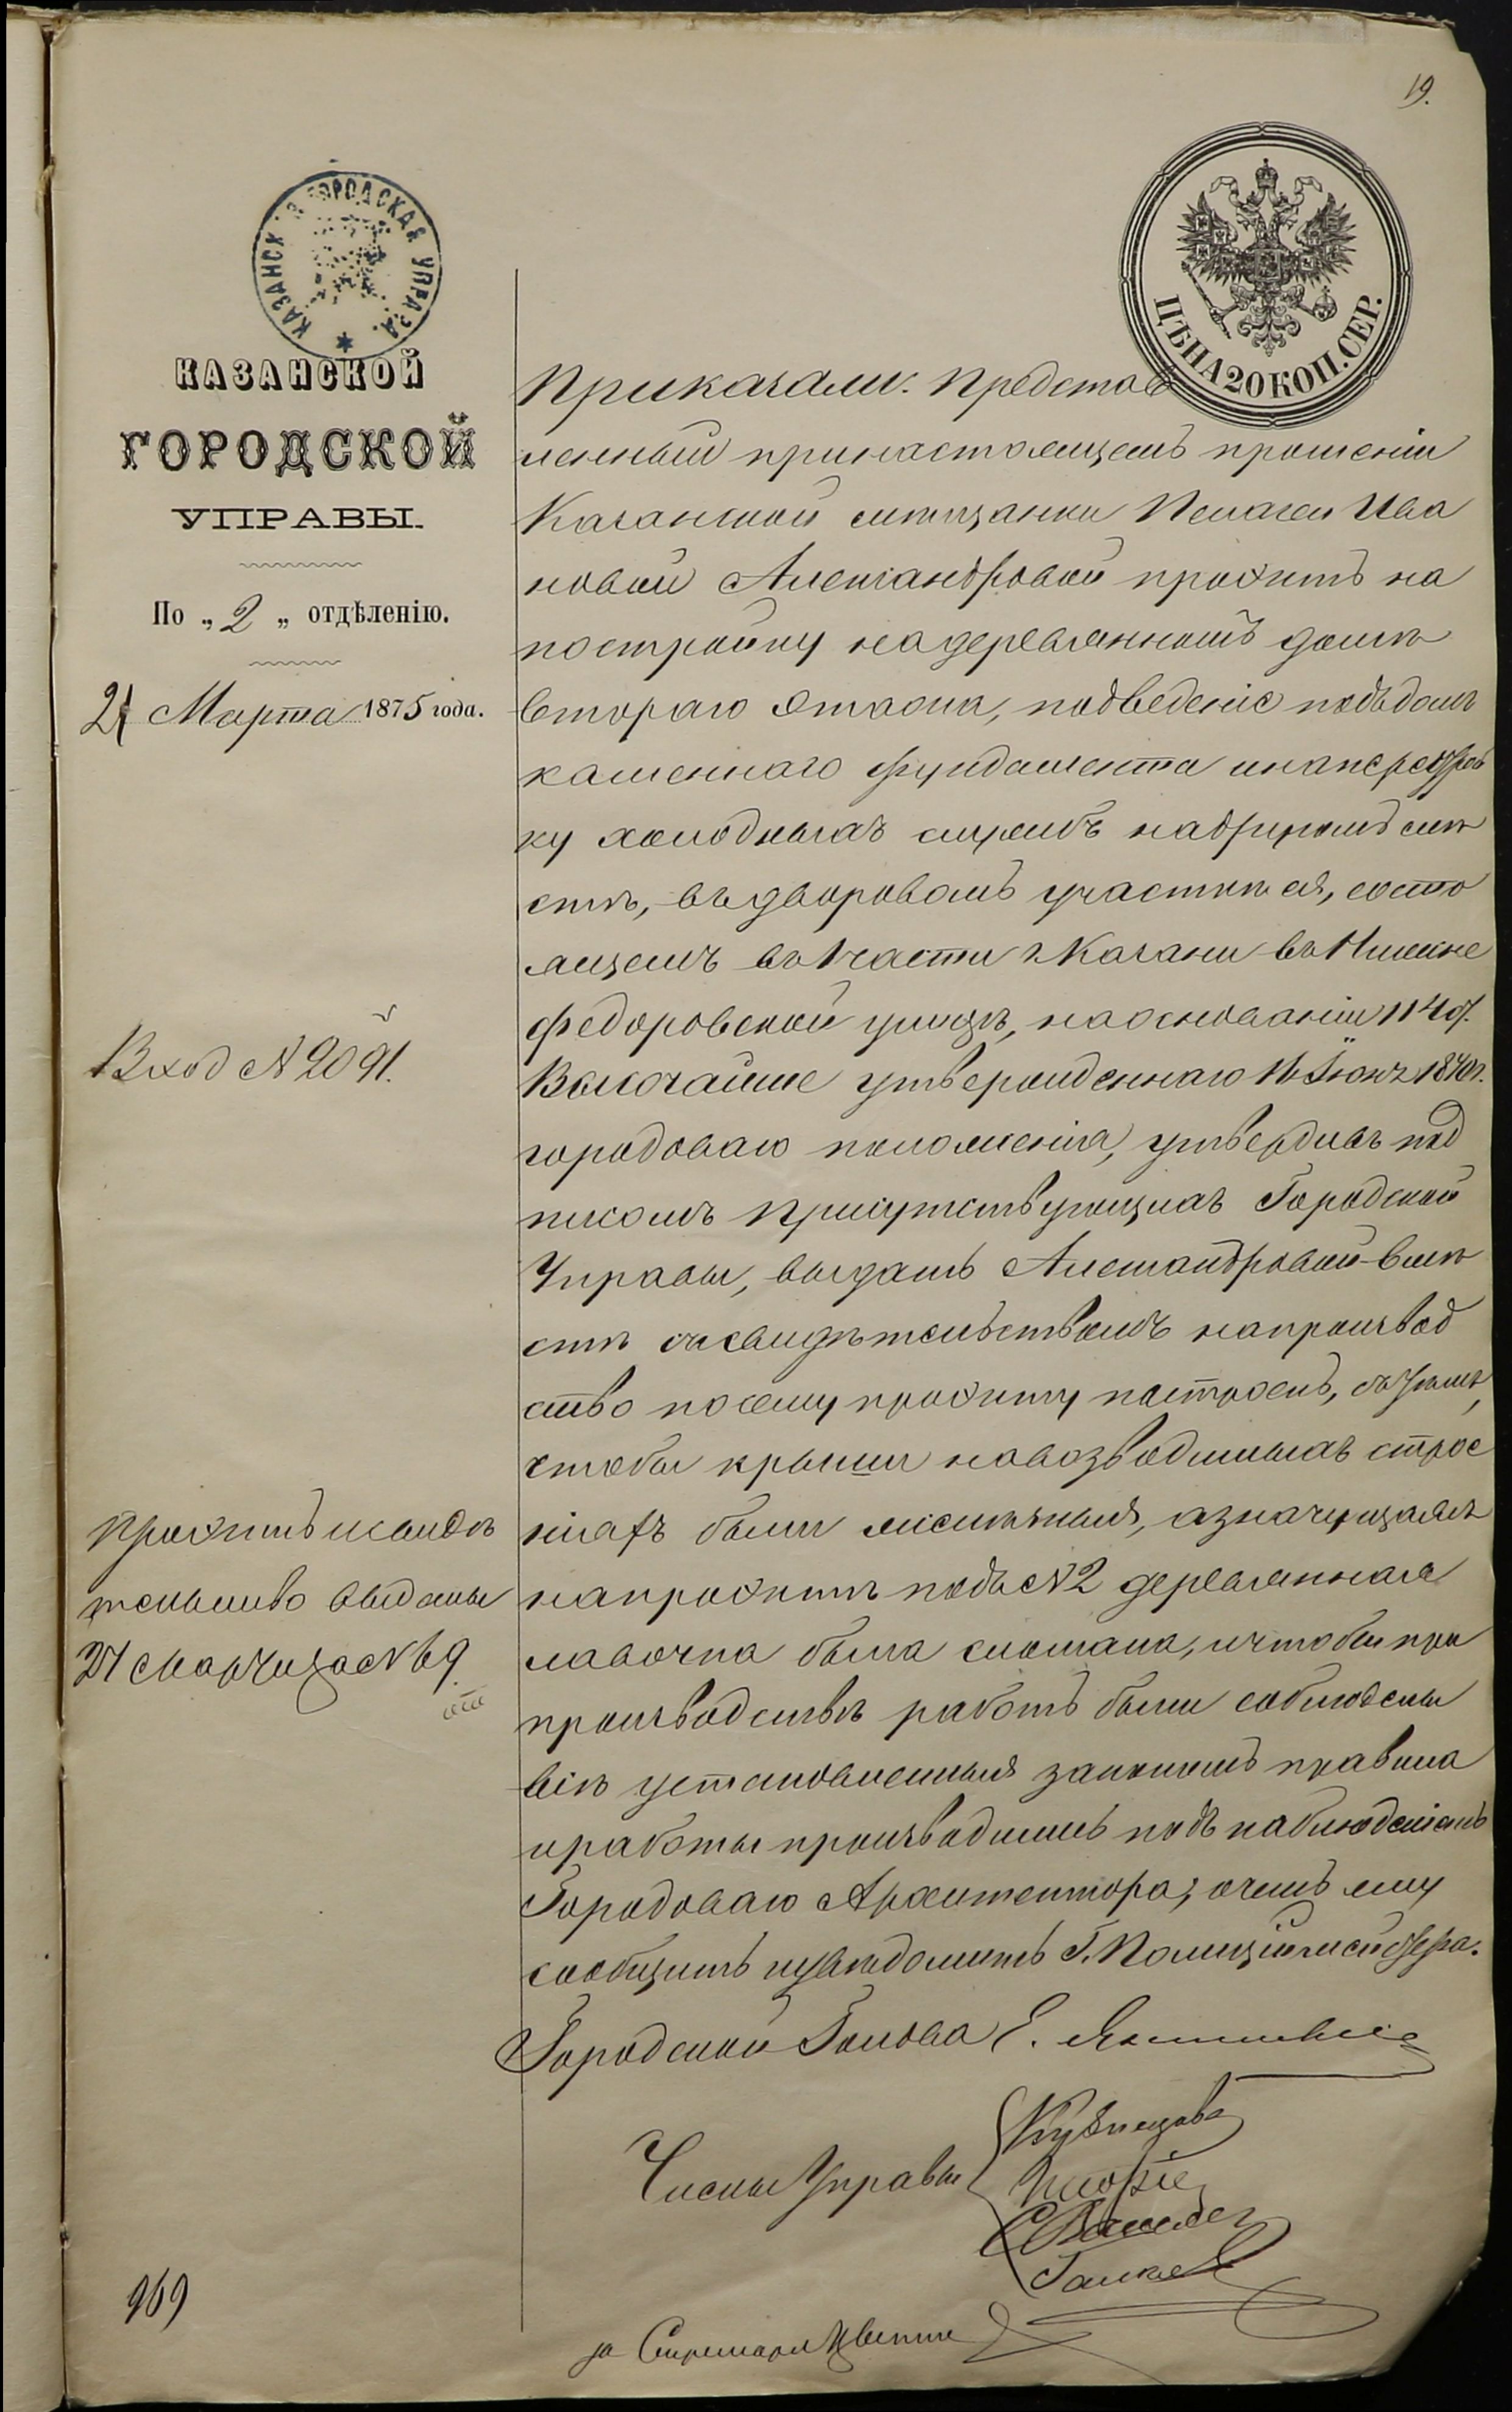 19.
КАЗАНСКАЯ ГОРОДСКАЯ УПРАВА.
ЦѢНА 20 КОП. СЕР.
КАЗАНСКОЙ
ГОРОДСКОЙ
УПРАВЫ.
По „2„ отдѣленію.
21 Марта 1875 года.
Вход № 2091.
Проэктъ и свидѣ
тельство выданы
27 Марта за № 69
969
Приказали: Представ
ленный при настоящемъ прошеніи
Казанской мѣщанки Пелагеи Ива
новой Александровой проэктъ на
постройку на деревянномъ домѣ
втораго этажа, подведеніе подъ домъ
каменнаго фундамента и на перестрой
ку холодныхъ службъ на другомъ мѣ
стѣ, въ дворовомъ участкѣ ея, состо
ящемъ въ 1 части г. Казани въ Нижне
федоровской улицѣ, на основаніи 114 ст.
Высочайше утвержденнаго 16 Іюня 1870 г.
городоваго положенія, утвердивъ под
писомъ присутствующихъ Городской
Управы, выдать Александровой вмѣ
стѣ съ свидѣтельствомъ на производ
ство по сему проэкту построекъ, съ тѣмъ,
чтобы крыши на возводимыхъ строе
ніяхъ были желѣзныя, а значущаяся
на проэктѣ подъ № 2 деревянная
лавочка была сломана, и чтобы при
производствѣ работъ были соблюдены
всѣ установленныя закономъ правила
и работы производились подъ наблюденіемъ
Городоваго Архитектора, о чемъ ему
сообщить и увѣдомить Г. Полиціймейстера.
Городской Голова Е.
Члены Управы
Кузнецовъ
за Секретаря